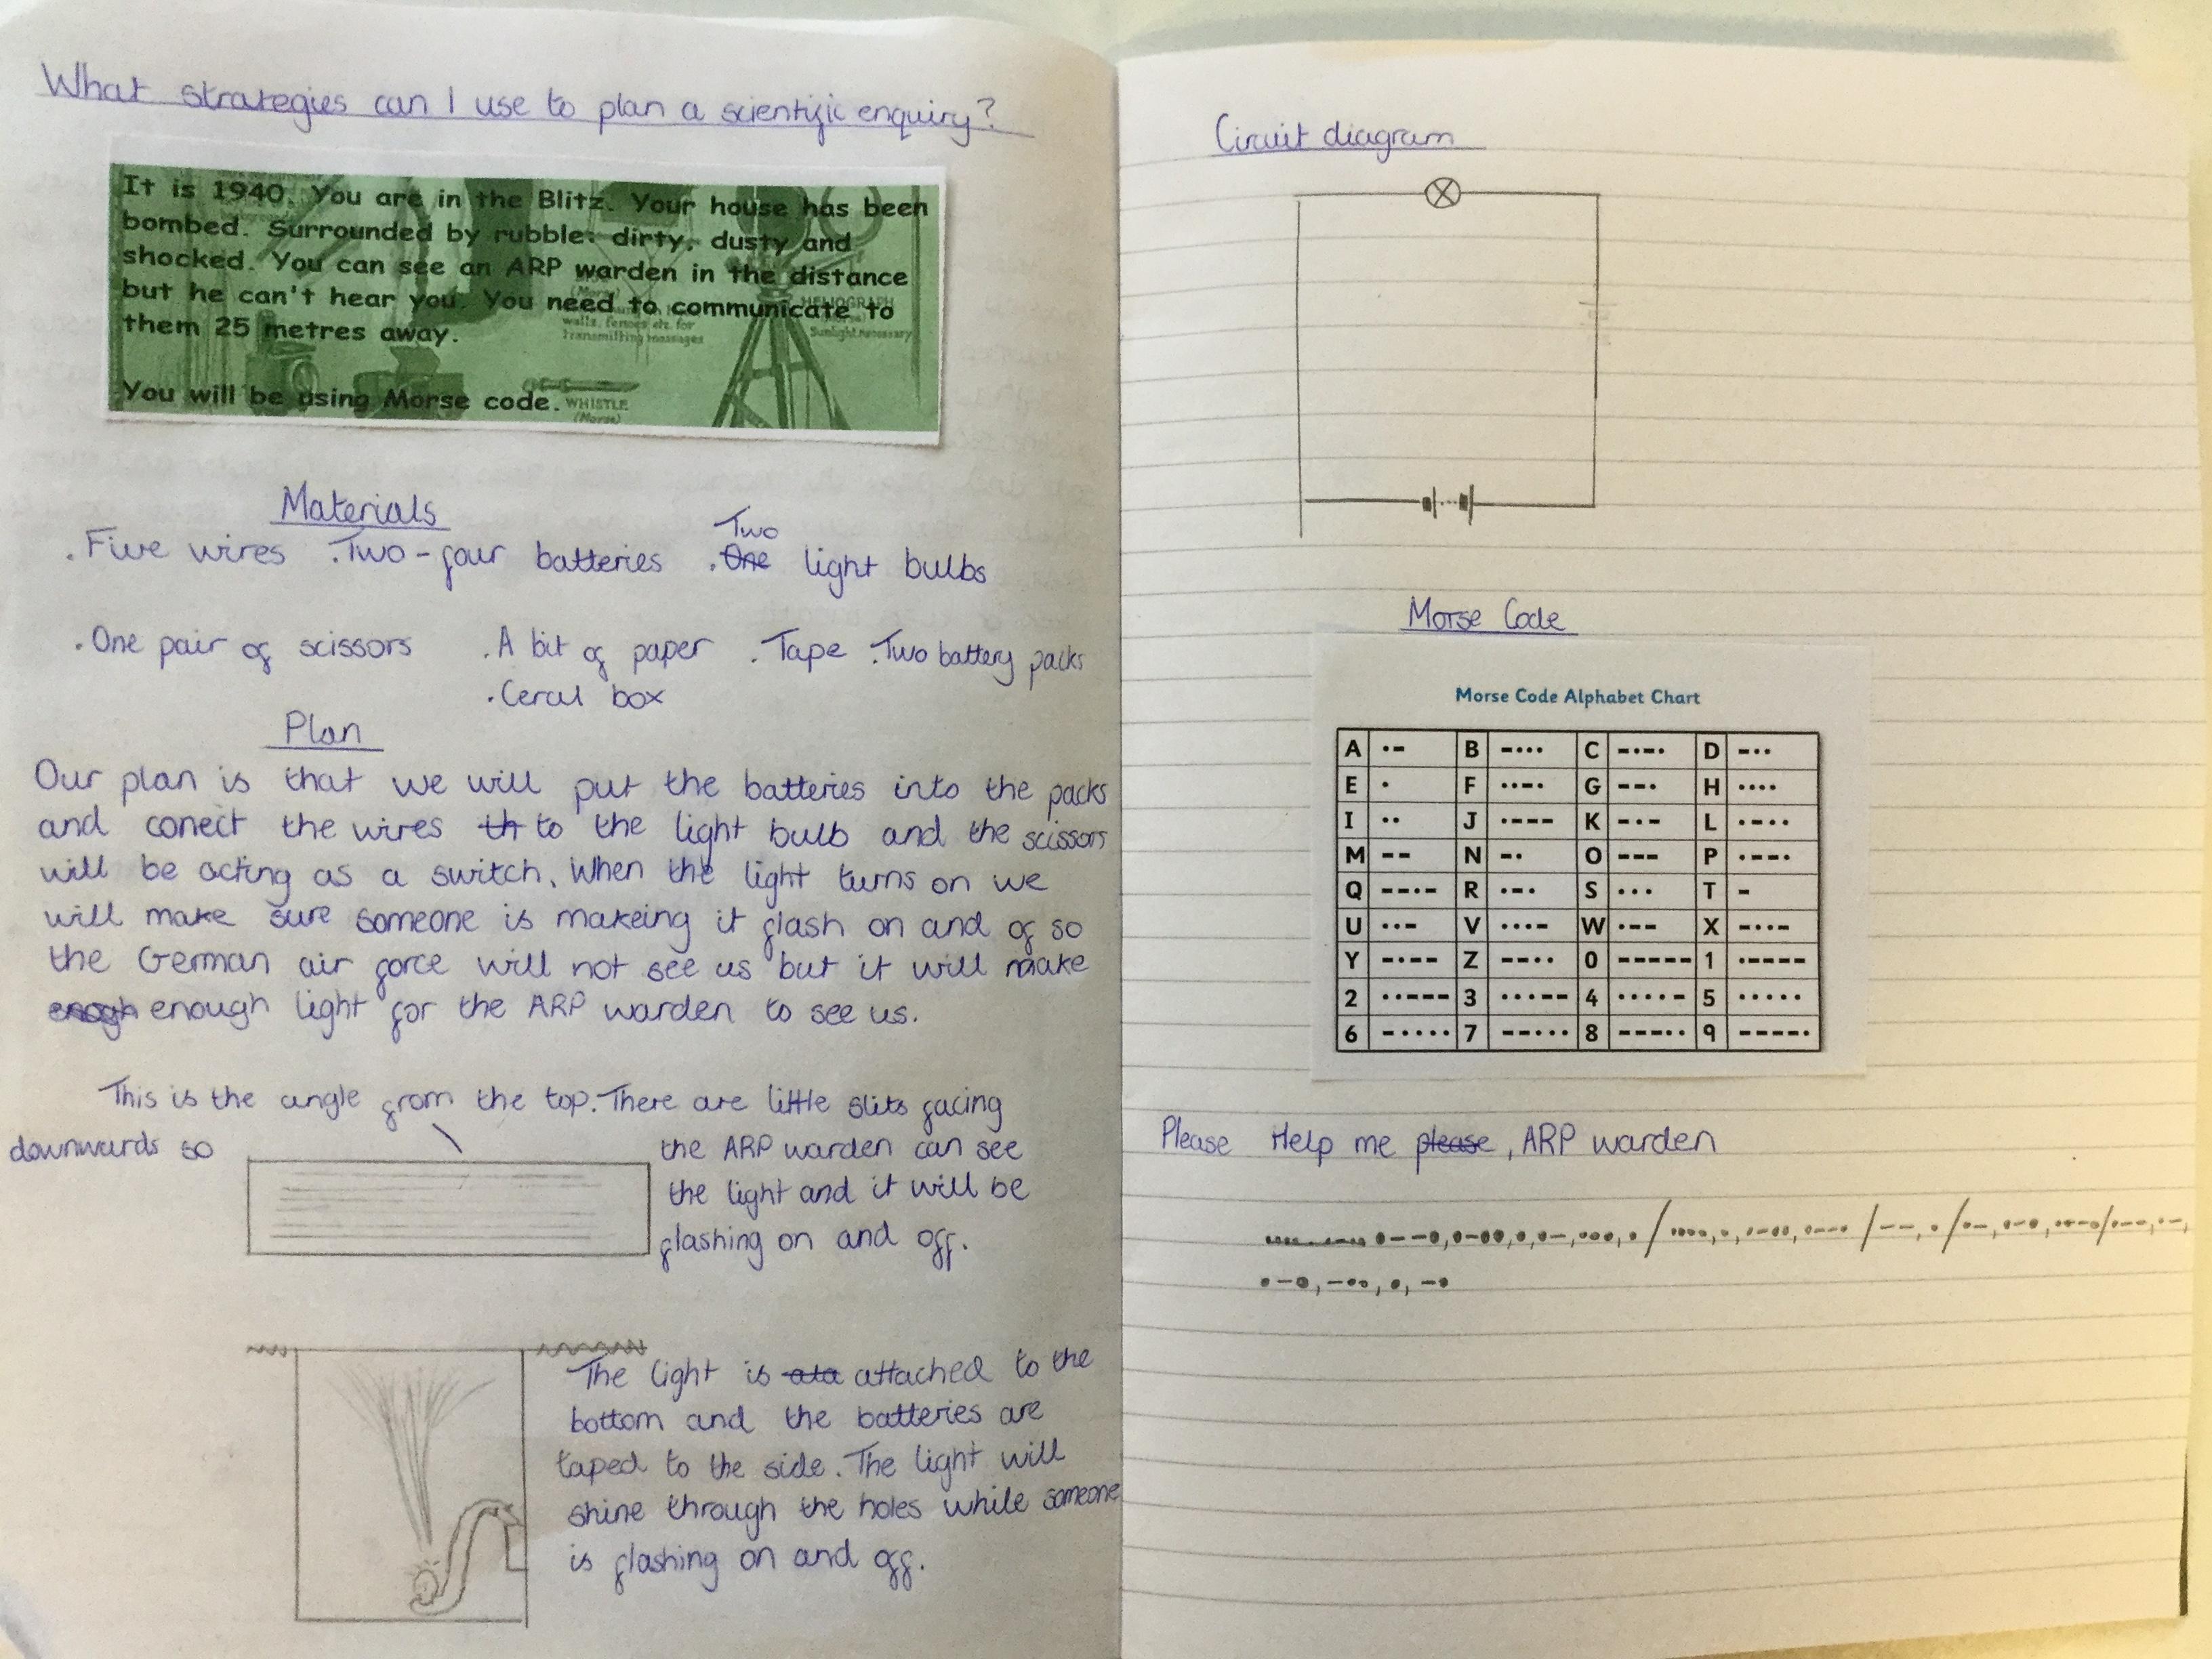 What strategies can I use to plan a scientific enquiry?
It is 1940. You are in the Blitz. Your house has been
bombed. Surrounded by rubble: dirty, dusty and
shocked. You can see an ARP warden in the distance
but he can't hear you. You need to communicate to
them 25 metres away.
You will be using Morse code.
(Morse)
HELIOGRAPH
walls, fences etc. for
Transmitting messages
Sunlight necessary
WHISTLE
(Morse)
Materials
. Five wires . Two - four batteries . One Two light bulbs
. One pair of scissors . A bit of paper . Tape . Two battery packs
. Cerel box
Plan
Our plan is that we will put the batteries into the packs
and conect the wires th to the light bulb and the scissors
will be acting as a switch. When the light turns on we
will make sure someone is makeing it flash on and of so
the German air force will not see us but it will make
enogh enough light for the ARP warden to see us.
This is the angle from the top. There are little slits facing
downwards so the ARP warden can see
the light and it will be
flashing on and off.
The light is ata attached to the
bottom and the batteries are
taped to the side. The light will
shine through the holes while someone
is flashing on and off.
Circuit diagram
Morse Code
Morse Code Alphabet Chart
A ·- B -··· C -·-· D -··
E · F ··-· G --· H ····
I ·· J ·--- K -·- L ·-··
M -- N -· O --- P ·--·
Q --·- R ·-· S ··· T -
U ··- V ···- W ·-- X -··-
Y -·-- Z --·· 0 ----- 1 ·----
2 ··--- 3 ···-- 4 ····- 5 ·····
6 -···· 7 --··· 8 ---·· 9 ----·
Please Help me please, ARP warden
·--·,·-··,·,·-,···,·/····,·,·-··,·--·/--,·/·-,·-·,·--·/·--,·-,
·-·,-··,·,-·